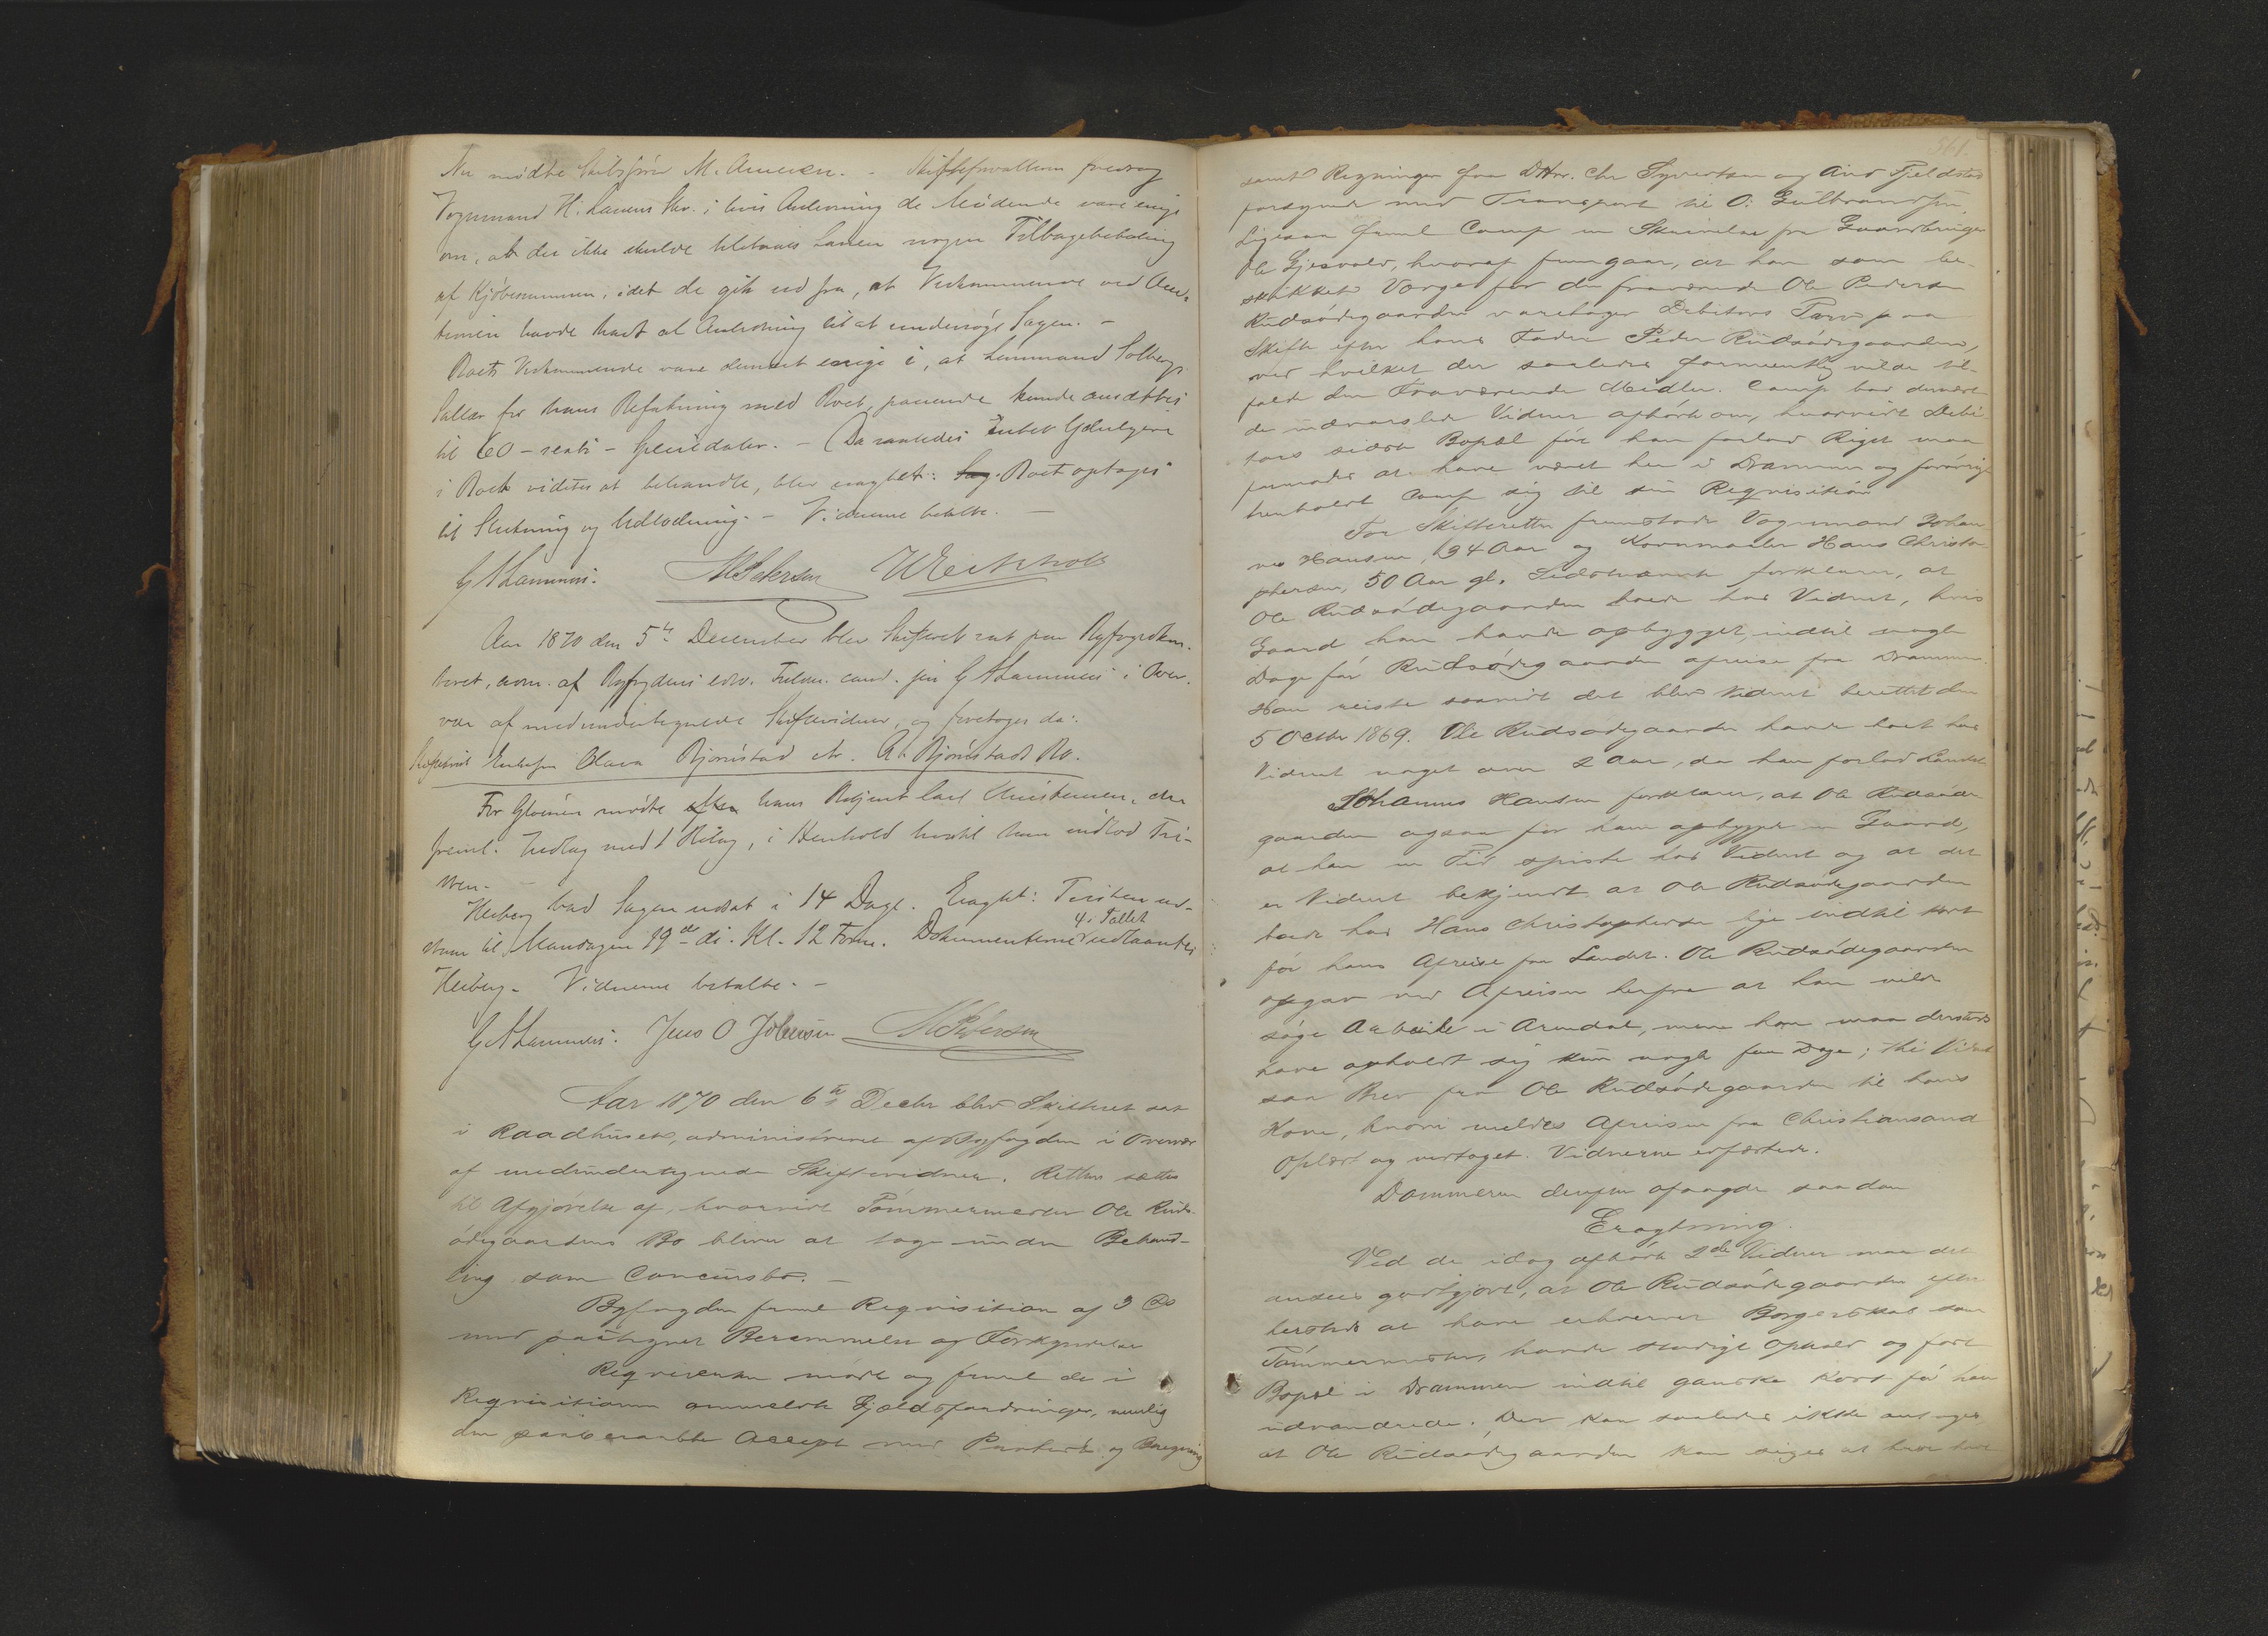 Nu mødte Skibsfører M. Amersen. – Skifteforvalteren fredrog
Vognmand H. Lauens Skr. i hvis Anledning de Mødende vare enige
om, at der ikke skulde tilstaaes Lauen nogen Tilbagebetaling
af Kjøbesummen, idet de gik ud fra, at Vedkommende ved Auc-
tionen havde havt al Anledning til at undersøge Sagen. –
Boets Vedkommende vare dernæst enige i, at Lensmand Solbergs
Sallær for hans Befatning med Boet passende kunde ansættes
til 60 – sexti – Speciedaler. – Da saaledes Intet Yderligere
i Boet vidstes at behandle, blev eragtet: Boet optages
til Slutning og Udlodning. – Vidnerne betalte. –
G A Lammers. M Pedersen W Eeckholt
Aar 1870 den 5te December blev Skifteret sat paa Byfogedkon-
toret, adm. af Byfogdens edsv. Fuldm. cand. jur G A Lammers i Over-
vær af medundertegnede Skiftevidner, og foretoges da:
Enkefru Olava Bjørnstad ctr. A. Bjørnstads Bo.
For Gloersen mødte hans Betjent Carl Christensen, der
freml. Indlæg med 1 Bilag, i Henhold hvortil han indlod Tri-
sten. –
Heiberg bad Sagen udsat i 14 Dage. Eragtet: Tvisten ud-
staar til Mandagen 19de ds. Kl. 12 Form. Dokumenterne 4 i Tallet udlaantes
Heiberg. Vidnerne betalte. –
G A Lammers. Jens O Johnsen M Pedersen
Aar 1870 den 6te Decbr blev Skifteret sat
i Raadhuset, administreret af Byfogden i Overvær
af medundertegnede Skiftevidner. Retten sattes
til Afgjørelse af, hvorvidt Tømmermester Ole Ruds-
ødegaardens Bo bliver at tage under Behand-
ling som Concursbo. –
Byfogden freml Reqvisition af 3 ds
med paategnet Berammelse og Forkyndelse
Reqvirenten mødte og freml de i
Reqvisitionen anmeldte Gjældsfordringer, nemlig
den paaberaabte Accept med Protest og Beregning
561.
samt Regninger fra DHrr. Chr Syvertsen og And Fjeldstad
forsynede med Transport til O. Gulbrandsen
Ligesaa freml Comp en Skrivelse fra Gaardbruger
Ole Gjesvold, hvoraf fremgaar, at han som be-
skikket Værge for den fraværende Ole Pedersen
Rudsødegaarden varetager Debitors Tarv paa
Skifte efter hans Fader Peder Rudsødegaarden,
ved hvilket der saaledes formentlig vilde til-
falde den Fraværende Midler. Comp bad dernæst
de indvarslede Vidner afhørte om, hvorvidt Debi-
tors sidste Bopæl før han forlod Riget maa
formodes at have været her i Drammen og forøvrigt
henholdt Comp sig til sin Reqvisition
For Skifteretten fremstode Vognmand Johan-
nes Hansen, 34 Aar og Kornmaaler Hans Christo-
phersen, 50 Aar gl. Sidstnævnte forklarer, at
Ole Rudsødegaarden boede hos Vidnet, hvis
Gaard han havde opbygget, indtil nogle
Dage før Rudsødegaarden afreiste fra Drammen.
Han reiste saavidt det blev Vidnet berettet den
5 Octbr 1869. Ole Rudsødegaarden havde boet hos
Vidnet noget over 2 Aar, da han forlod Landet
Johannes Hansen forklarer, at Ole Rudsøde-
gaarden ogsaa for ham opbygget en Gaard,
at han en Tid spiste hos Vidnet og at det
er Vidnet bekjendt at Ole Rudsødegaarden
boede hos Hans Christophersen lige indtil kort
før hans Afreise fra Landet. Ole Rudsødegaarden
opgav ved Afreisen herfra at han vilde
søge Arbeide i Arendal, men han maa dersteds
have opholdt sig kun nogle faa Dage; thi Vidnet
saa Brev fra Ole Rudsødegaarden til hans
Kone, hvori meldes Afreisen fra Christiansand
Oplæst og vedtaget. Vidnerne erfæstede.
Dommeren derefter afsagde saadan
Eragtning.
Ved de idag afhørte 2de Vidner maa det
ansees godtgjort, at Ole Rudsødegaarden efter
hersteds at have erhvervet Borgerskab som
Tømmermester, havde stadigt Ophold og fast
Bopæl i Drammen indtil ganske kort før han
udvandrede. Der kan saaledes ikke antages
at Ole Rudsødegaarden kan siges at have havt